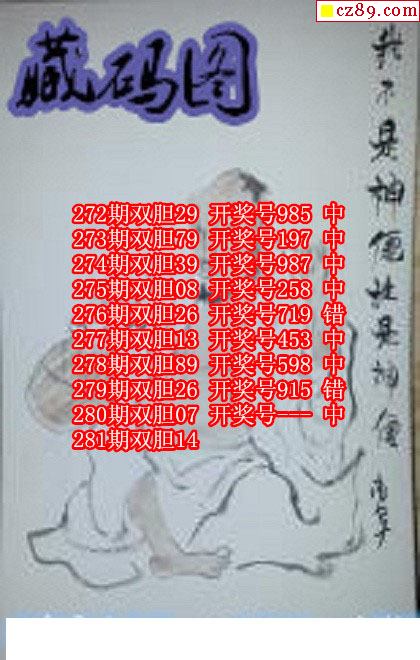 cz89.com
藏码图
我不是神便社是神便
272期双胆29 开奖号985 中
273期双胆79 开奖号197 中
274期双胆39 开奖号987 中
275期双胆08 开奖号258 中
276期双胆26 开奖号719 错
277期双胆13 开奖号453 中
278期双胆89 开奖号598 中
279期双胆26 开奖号915 错
280期双胆07 开奖号--- 中
281期双胆14